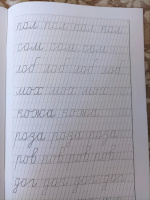 пол пол пол пол
сом сом сом
лоб лоб лоб лоб
мох мох мох мох
кожа кожа
роза роза роза
ров ров ров ров
дог